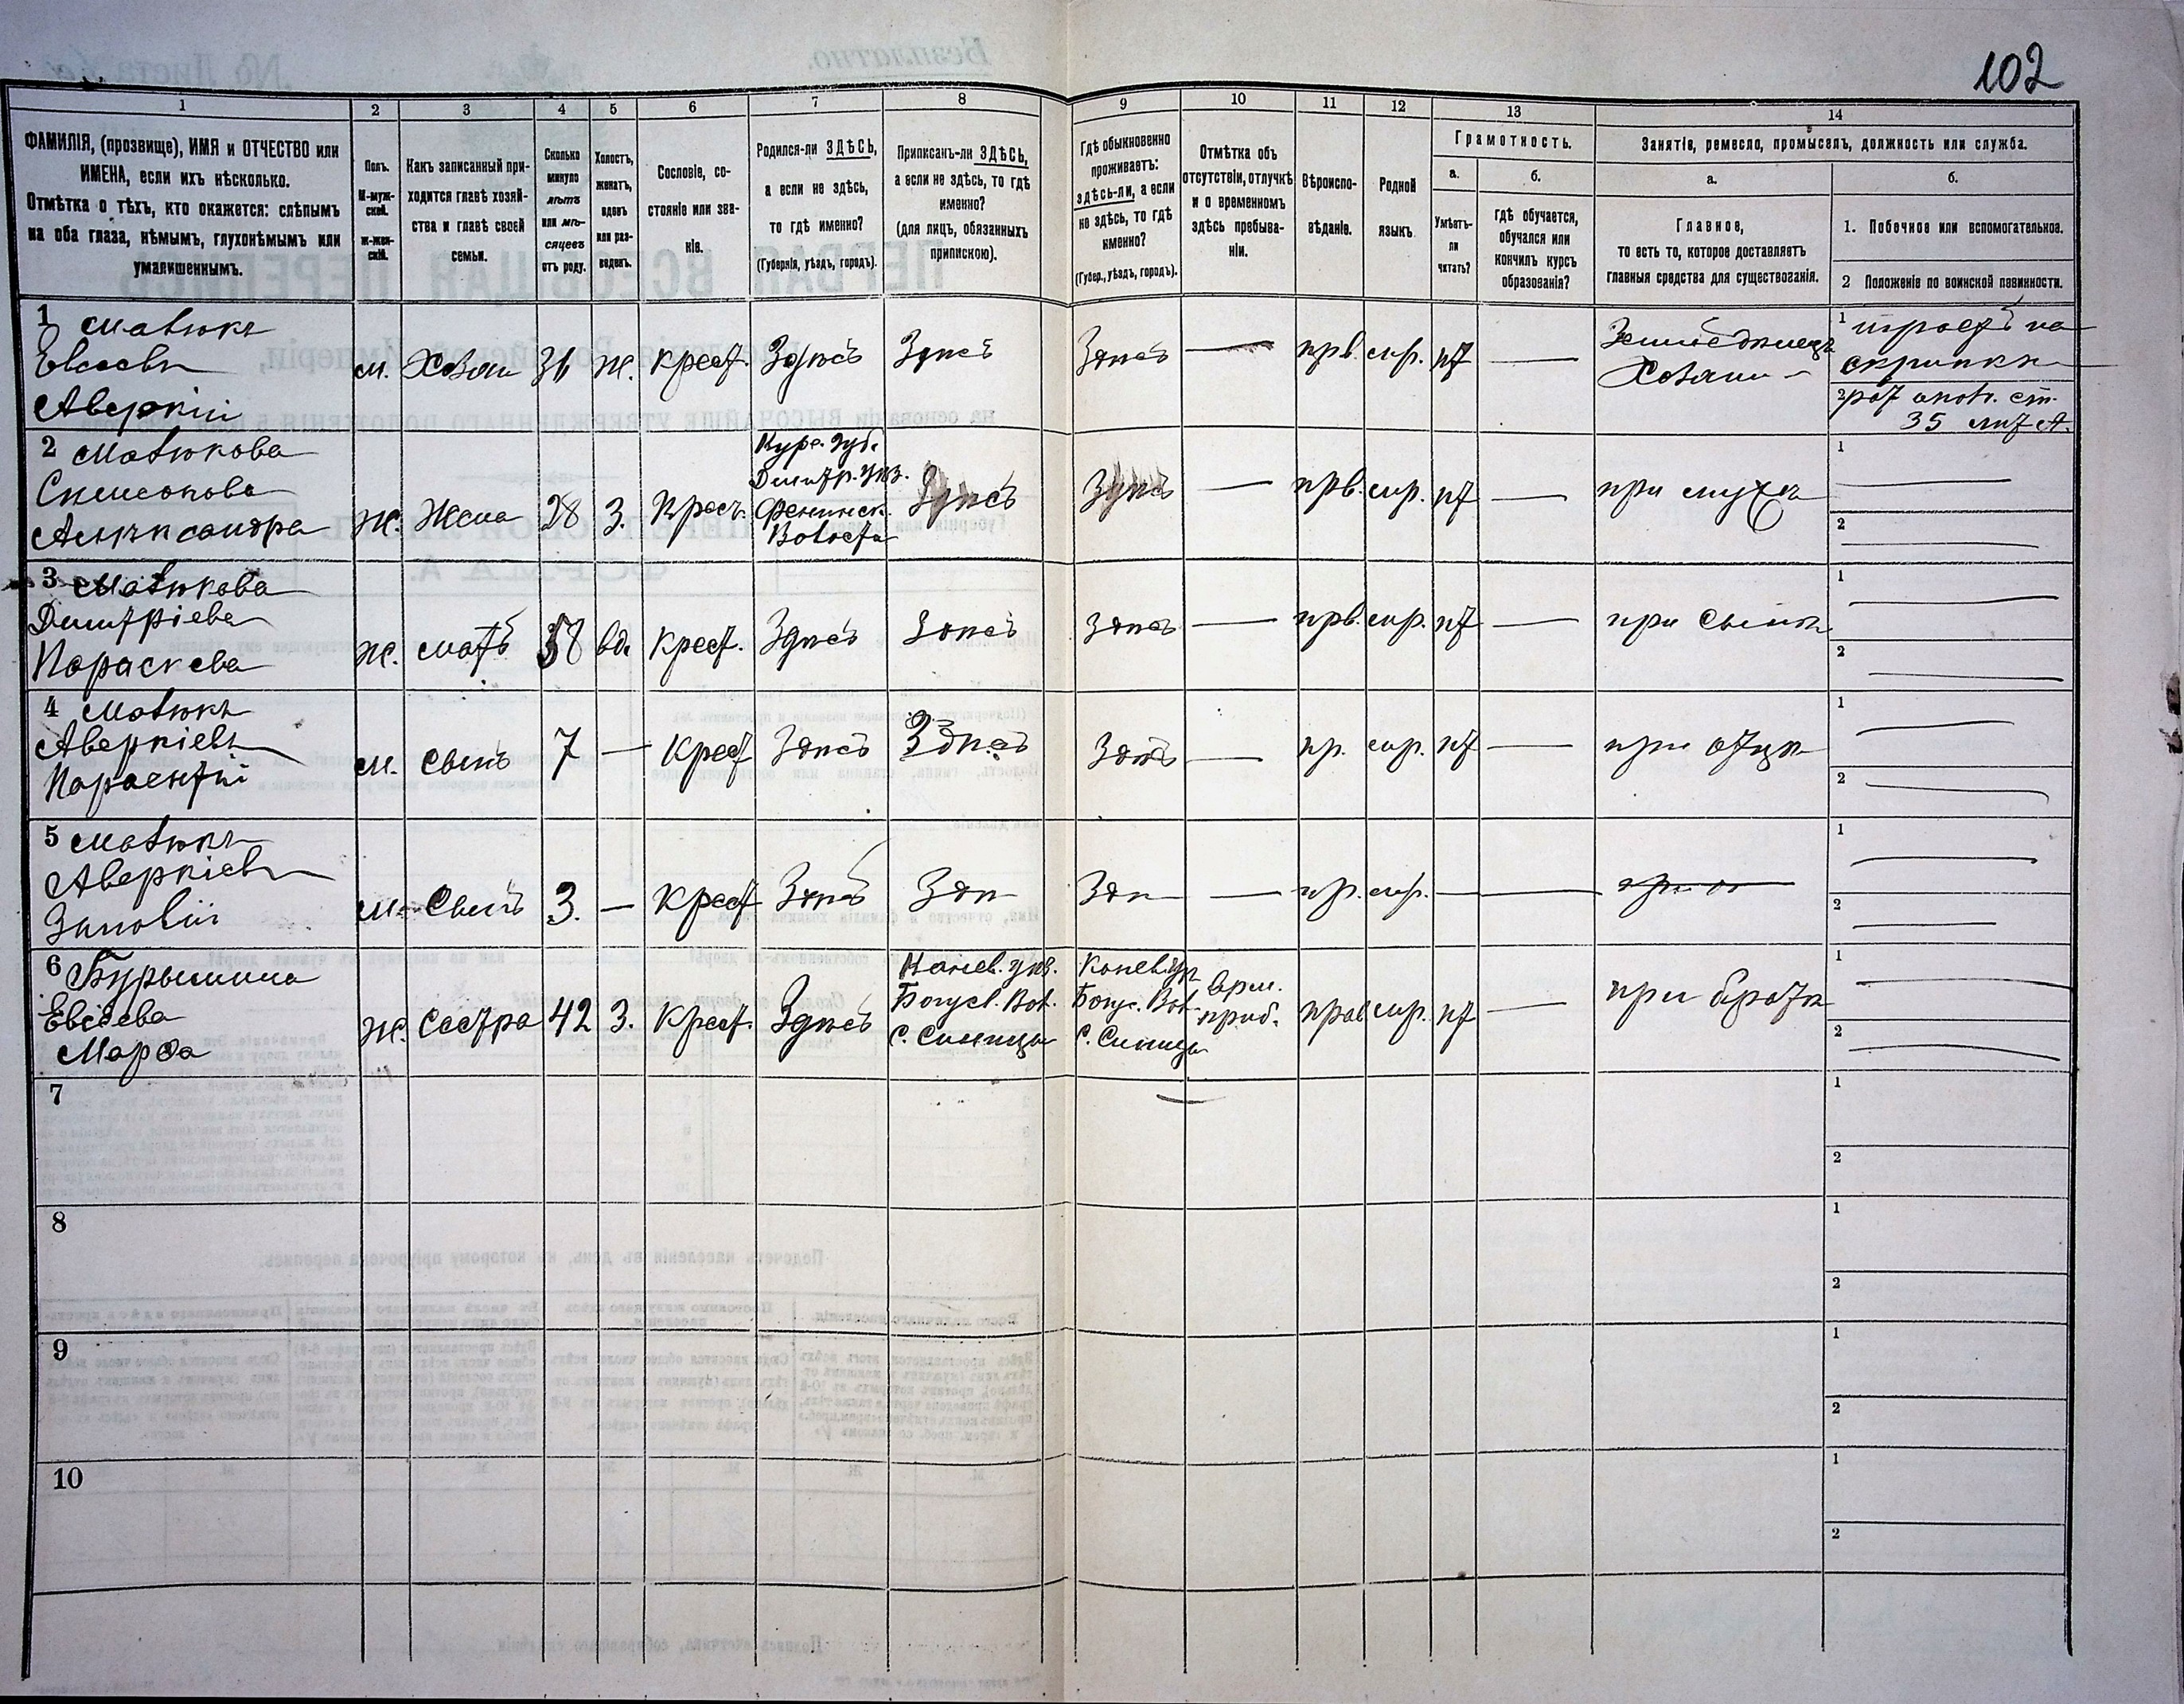 102
1 2 3 4 5 6 7 8 9 10 11 12 13 14
ФАМИЛІЯ, (прозвище), ИМЯ и ОТЧЕСТВО или
ИМЕНА, если ихъ нѣсколько.
Отмѣтка о тѣхъ, кто окажется: слѣпымъ
на оба глаза, нѣмымъ, глухонѣмымъ или
умалишеннымъ.
Полъ.
М-муж-
ской.
Ж-жен-
скій.
Какъ записанный при-
ходится главѣ хозяй-
ства и главѣ своей
семьи.
Сколько
минуло
лѣтъ
или мѣ-
сяцевъ
отъ роду.
Холостъ,
женатъ,
вдовъ
или раз-
веденъ.
Сословіе, со-
стояніе или зва-
ніе.
Родился-ли ЗДѢСЬ,
а если не здѣсь,
то гдѣ именно?
(Губернія, уѣздъ, городъ).
Приписанъ-ли ЗДѢСЬ,
а если не здѣсь, то гдѣ
именно?
(для лицъ, обязанныхъ
припискою).
Гдѣ обыкновенно
проживаетъ:
здѣсь-ли, а если
не здѣсь, то гдѣ
именно?
(Губер., уѣздъ, городъ).
Отмѣтка объ
отсутствіи, отлучкѣ
и о временномъ
здѣсь пребыва-
ніи.
Вѣроиспо-
вѣданіе.
Родной
языкъ
Грамотность.
а.
Умѣетъ-
ли
читать?
б.
гдѣ обучается,
обучался или
кончилъ курсъ
образованія?
Занятіе, ремесло, промыселъ, должность или служба.
а.
Главное,
то есть то, которое доставляетъ
главныя средства для существованія.
б.
1. Побочное или вспомогательное.
2 Положеніе по воинской повинности.
1 Матюкъ
Евсеевъ
Аверкій
м. Хозяин 36 ж. крест. Здѣсь Здѣсь Здѣсь — прв. мр. нѣт —
Земледѣлецъ
Хозяин
1 играетъ на
скрипкѣ
2 рат опол. ст.
35 лит А.
2 Матюкова
Симеонова
Александра
ж. Жена 28 З. Крест.
Кур. Губ.
Дмитр. уѣз.
Волость
Здѣсь Здѣсь — прв. мр. нѣт — при мужѣ
1
2
3 Матюкова
Дмитріева
Параскева
ж. мать 58 вд. крест. Здѣсь Здѣсь Здѣсь — прв. мр. нѣт — при сынѣ
1
2
4 Матюкъ
Аверкіевъ
м. сынъ 7 — Крест Здѣсь Здѣсь Здѣсь — пр. мр. нѣт — при отцѣ
1
2
5 Матюкъ
Аверкіевъ
Зиновій
м. Сынъ 3. — Крест Здѣсь Здѣ Здѣ — пр. мр. —
1
2
6 Бурымина
Евсеева
Марѳа
ж. Сестра 42 З. Крест. Здѣсь
Канев. уѣз.
Богусл. Вол.
С. Синица
Канев. ур
Богус. Вол.
С. Синица
врем.
приб.
прав мр. нѣт — при братѣ
1
2
7
1
2
8
1
2
9
1
2
10
1
2